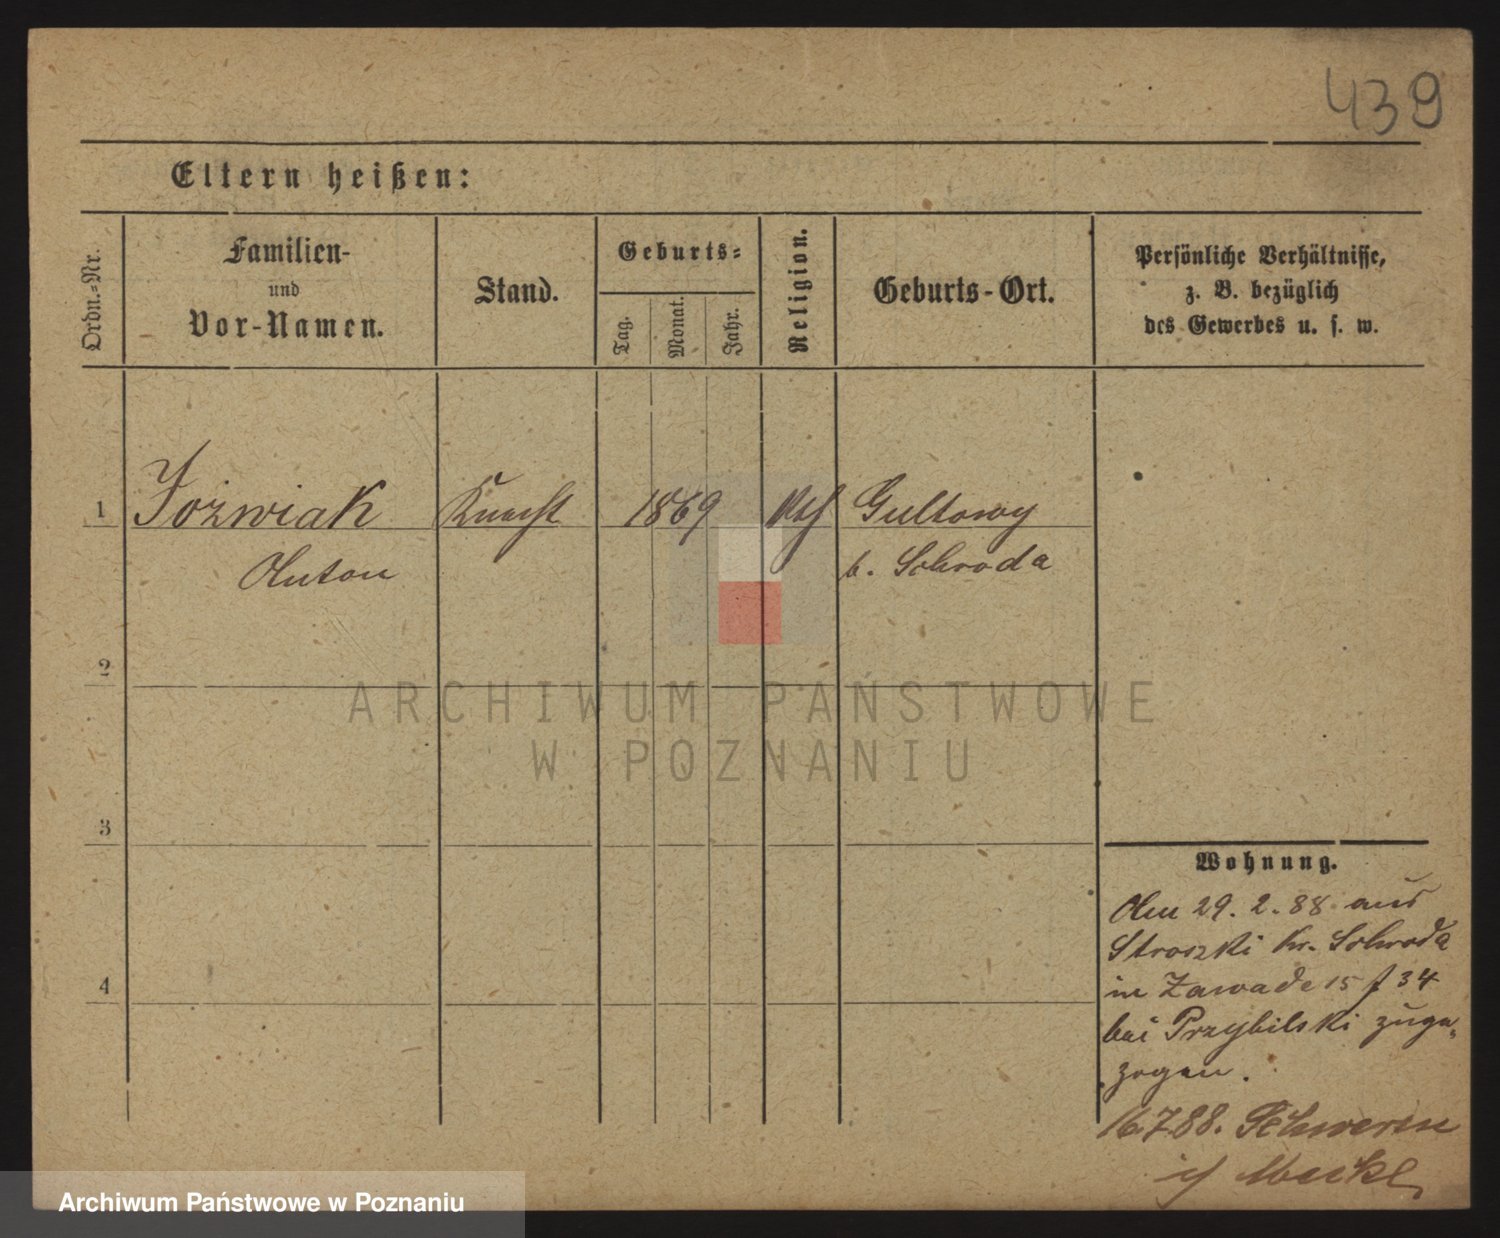 439
Eltern heißen:
Ordn.-Nr.
Familien-
und
Vor-Namen.
Stand.
Geburts-
Tag.
Monat.
Jahr.
Religion.
Geburts-Ort.
Persönliche Verhältnisse,
z. B. bezüglich
des Gewerbes u. s. w.
1 Jozwiak Knecht 1869 kth Gultowy
Anton b. Schroda
2
ARCHIWUM PAŃSTWOWE
W POZNANIU
3
Wohnung.
Am 29. 2. 88 aus
Stroszki Kr. Schroda
4
in Zawade 15 34
bei Przybilski zuge-
zogen.
16.7.88. Schwerin
i/ Meckl.
Archiwum Państwowe w Poznaniu